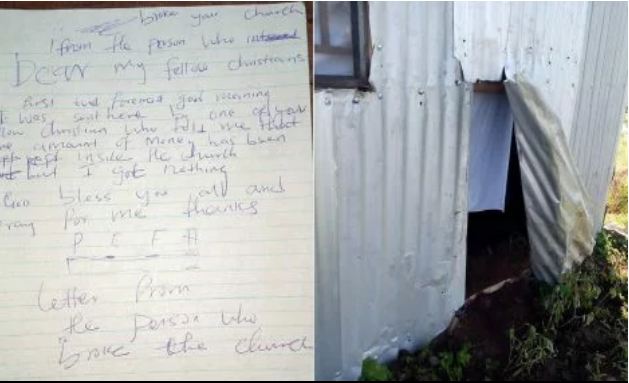 broke your church
from the person who
Dear my fellow christians
first and foremost good morning
I was sent here by one of your
fellow christian who told me that
amount of money has been
kept inside the church
but I got nothing
God bless you all and
pray for me thanks
Letter from
the person who
broke the church